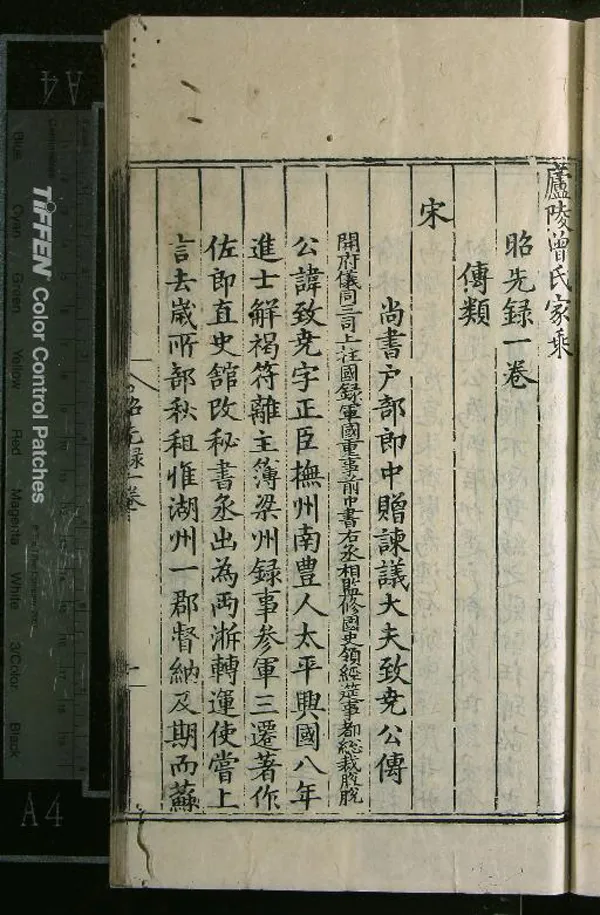 廬陵曾氏家乘
昭先録一卷
傳類
宋
尚書户部郎中贈諫議大夫致堯公傳
開府儀同三司上柱國録軍國重事前中書右丞相監修國史領經筵事都總裁脫脫
公諱致堯字正臣撫州南豊人太平興國八年
進士解褐符離主簿梁州録事参軍三遷著作
佐郎直史舘改秘書丞出為両浙轉運使嘗上
言去嵗所部秋租惟湖州一郡督納及期而蘇
昭先録一卷
一
A4
TIFFEN Color Control Patches
Blue
Cyan
Green
Yellow
Red
Magenta
White
3/Color
Black
A4